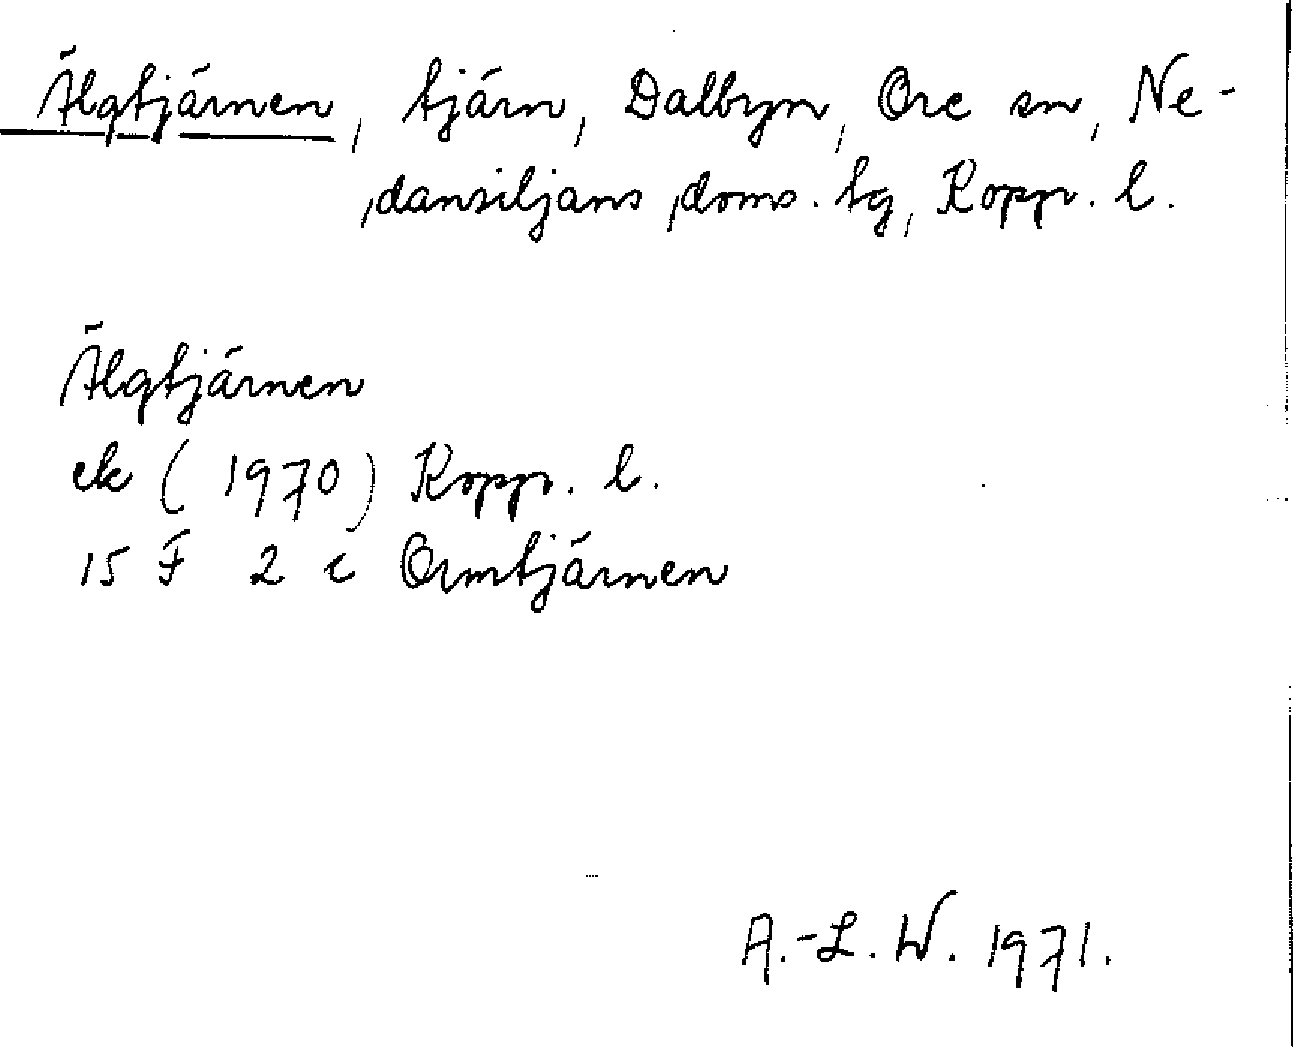 Älgtjärnen, tjärn, Dalbyn, Ore sn, Ne-
dansiljans doms. tg, Kopp. l.
Älgtjärnen
ek (1970) Kopp. l.
15 F 2 c Ormtjärnen
A.-L. W. 1971.